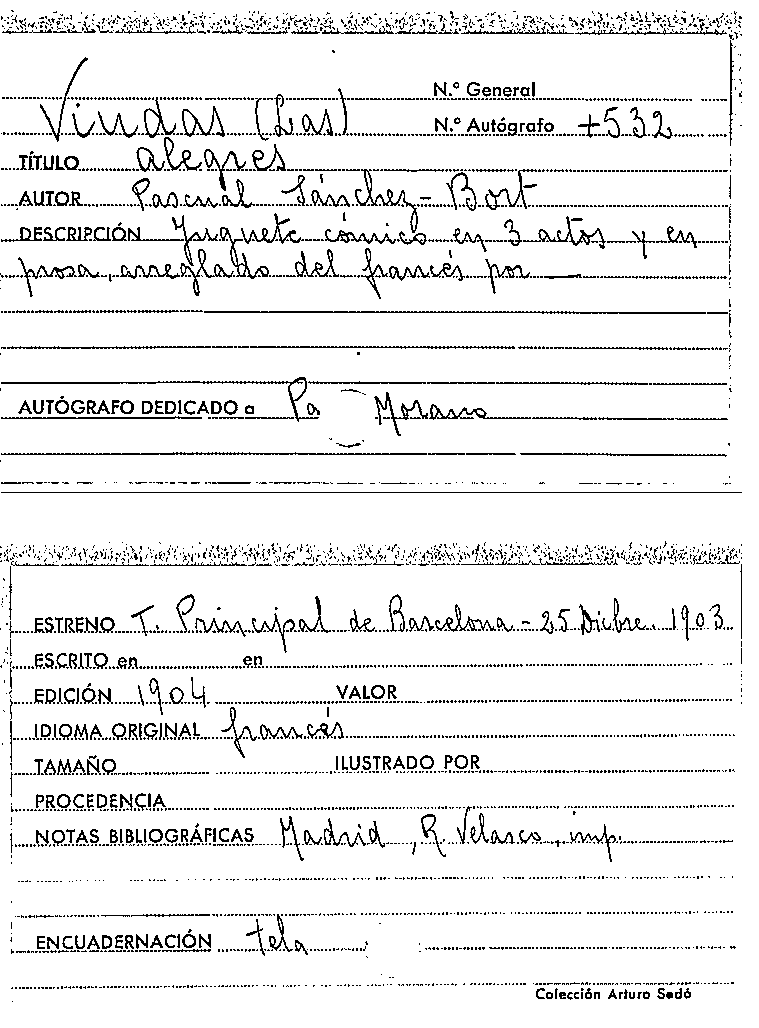 N.º General
Viudas (Las) N.º Autógrafo +532
TÍTULO alegres
AUTOR Pascual Sánchez-Bort
DESCRIPCIÓN Juguete cómico en 3 actos y en
prosa, arreglado del francés por —
AUTÓGRAFO DEDICADO a Pa Morano
ESTRENO T. Principal de Barcelona - 25 Dicbre. 1903
ESCRITO en en
EDICIÓN 1904 VALOR
IDIOMA ORIGINAL francés
TAMAÑO ILUSTRADO POR
PROCEDENCIA
NOTAS BIBLIOGRÁFICAS Madrid, R. Velasco, imp.
ENCUADERNACIÓN tela
Colección Arturo Sedó